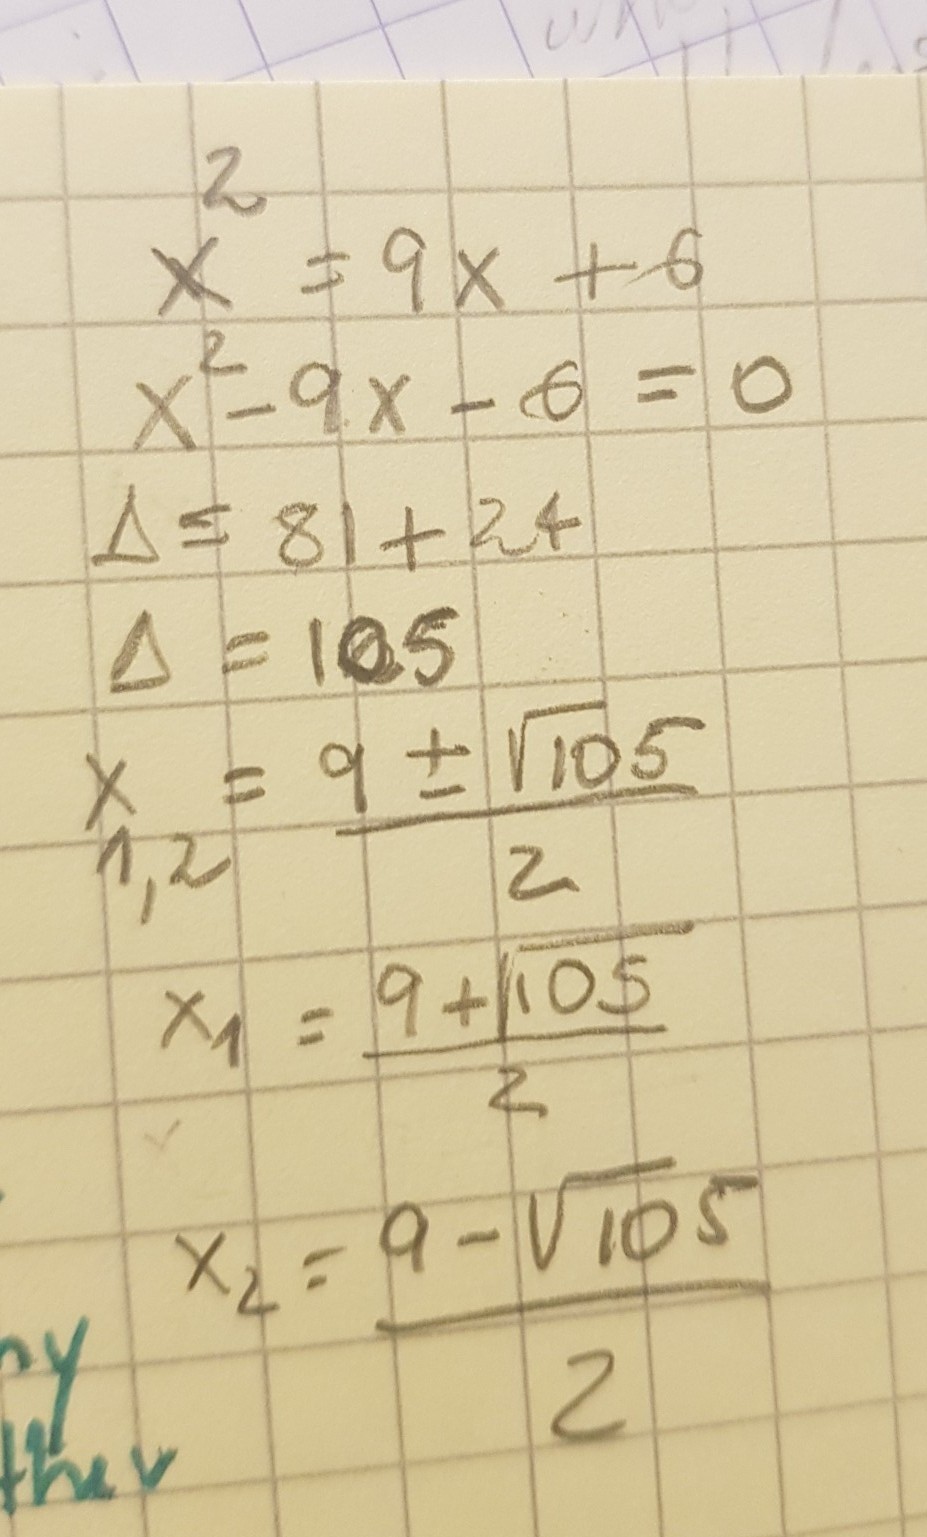 x² = 9x + 6
x² - 9x - 6 = 0
Δ = 81 + 24
Δ = 105
x₁,₂ = (9 ± √105)/2
x₁ = (9 + √105)/2
x₂ = (9 - √105)/2